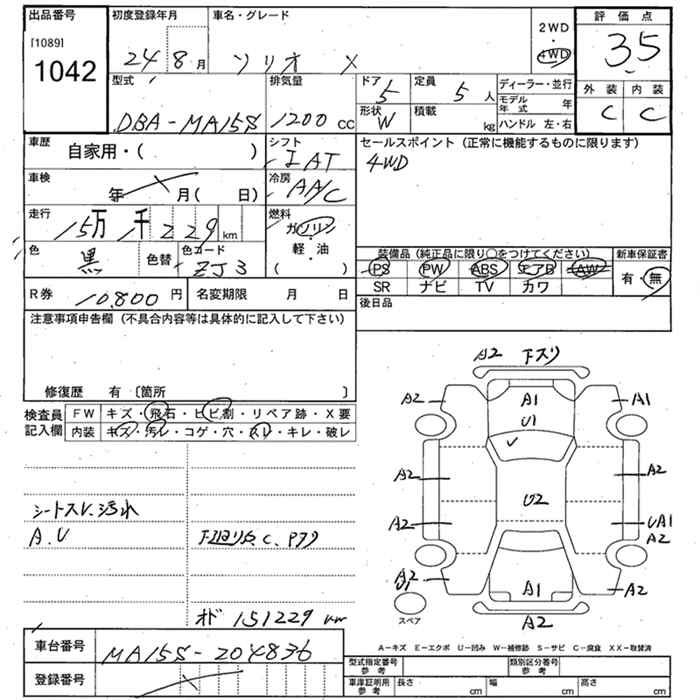 出品番号
[1089]
1042
初度登録年月
24 8 月
車名・グレード
ソリオ X
2WD
・
4WD
評価点
3.5
外装 内装
C C
型式
DBA-MA15S
排気量
1200 cc
ドア
5
形状
W
定員
5 人
積載
kg
ディーラー・並行
モデル年式 年
ハンドル 左・右
車歴
自家用・( )
シフト
IAT
セールスポイント (正常に機能するものに限ります)
4WD
車検
年 月( 日)
冷房
AA/C
走行
15万 1千 229 km
燃料
ガソリン
軽・油
( )
色
黒
色替
色コード
ZJ3
装備品 (純正品に限り○をつけてください)
新車保証書
PS PW ABS エアB AW
SR ナビ TV カワ
有・無
R券 10,800 円
名変期限 月 日
後日品
注意事項申告欄 (不具合内容等は具体的に記入して下さい)
修復歴 有 〔箇所 〕
検査員記入欄
FW キズ・飛石・ヒビ割・リペア跡・X要
内装 キズ・汚レ・コゲ・穴・スレ・キレ・破レ
シートスレ.汚れ
A.U
オド 151229 km
A2 下スリ
A2 A1 A1
U1
A2 A2
U2
A2 UA1
A2
A2
U1
A1 A2
A2
スペア
A-キズ E-エクボ U-凹み W-補修跡 S-サビ C-腐食 XX-取替済
車台番号
MA15S-204836
登録番号
型式指定番号
参考
類別区分番号
参考
車庫証明用
参考
長さ cm 幅 cm 高さ cm